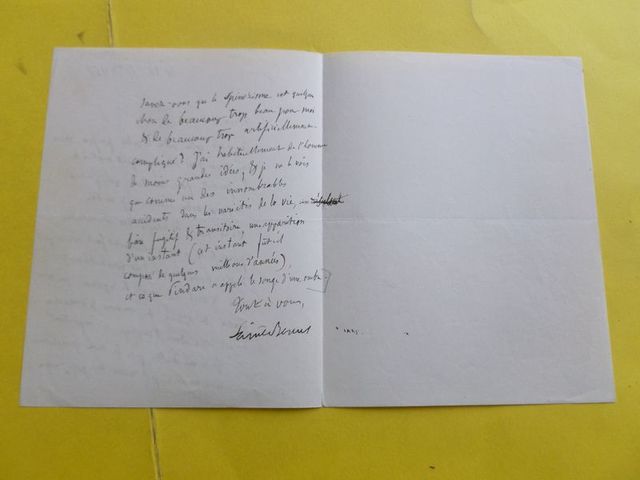 Savez-vous que le Spinozisme est quelque
chose de beaucoup trop beau pour moi
& de beaucoup trop artificiellement
compliqué? J'ai habituellement de l'homme
de moins grandes idées, & je ne le vois
que comme un des innombrables
accidents dans les variétés de la vie, un
bien fugitif & transitoire, une apparition
d'un instant (cet instant fût-il
composé de quelques millions d'années),
et ce que Pindare a appelé le songe d'une ombre
Tout à vous,
Sainte-Beuve